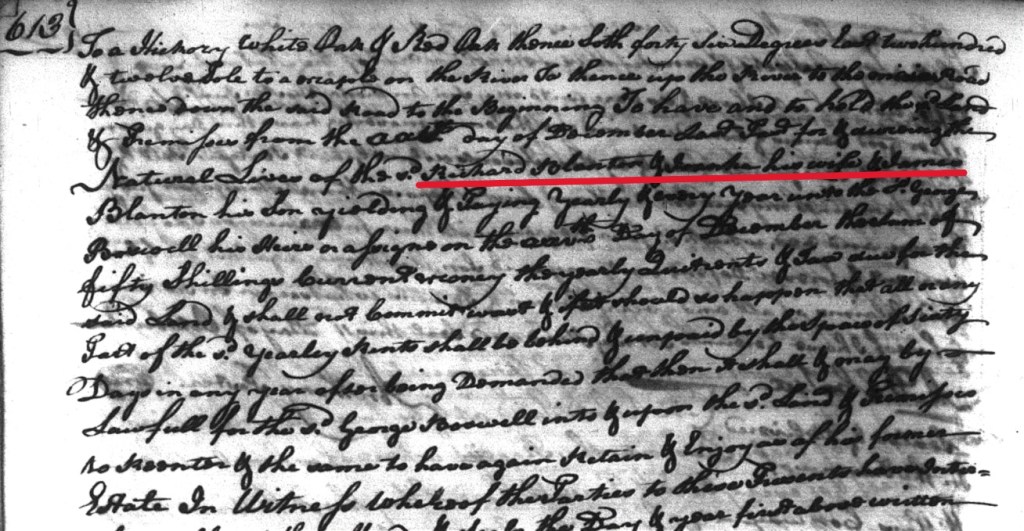 613
To a Hickory White Oak & Red Oak thence Soth forty Six Degrees East two hundred
& twelve Pole to a on the River To thence up the River to the Road
thence down the said Road to the Beginning To have and to hold the sd. Land
& Premises from the day of December Last Past for & during the
Natural Lives of the sd. Richard Blanton & his wife & James
Blanton his Son yielding & Paying Yearly & every Year unto the sd. George
Boswell his Heirs or assigns on the Day of December the sum of
fifty Shillings Current money the yearly Quitrents & Tax due for the
said Land & shall not Commit wast & if it should so happen that all or any
Part of the sd. Yearley Rents shall be behind & unpaid by the Space of Sixty
Days in any year after being Demanded that then it shall & may be
Lawfull for the sd. George Boswell into & upon the sd. Land & Premises
to Reenter & the same to have again Retain & Enjoy as of his former
Estate In Witness whereof the Parties to these Presents have Inter=
the Day & year first above written